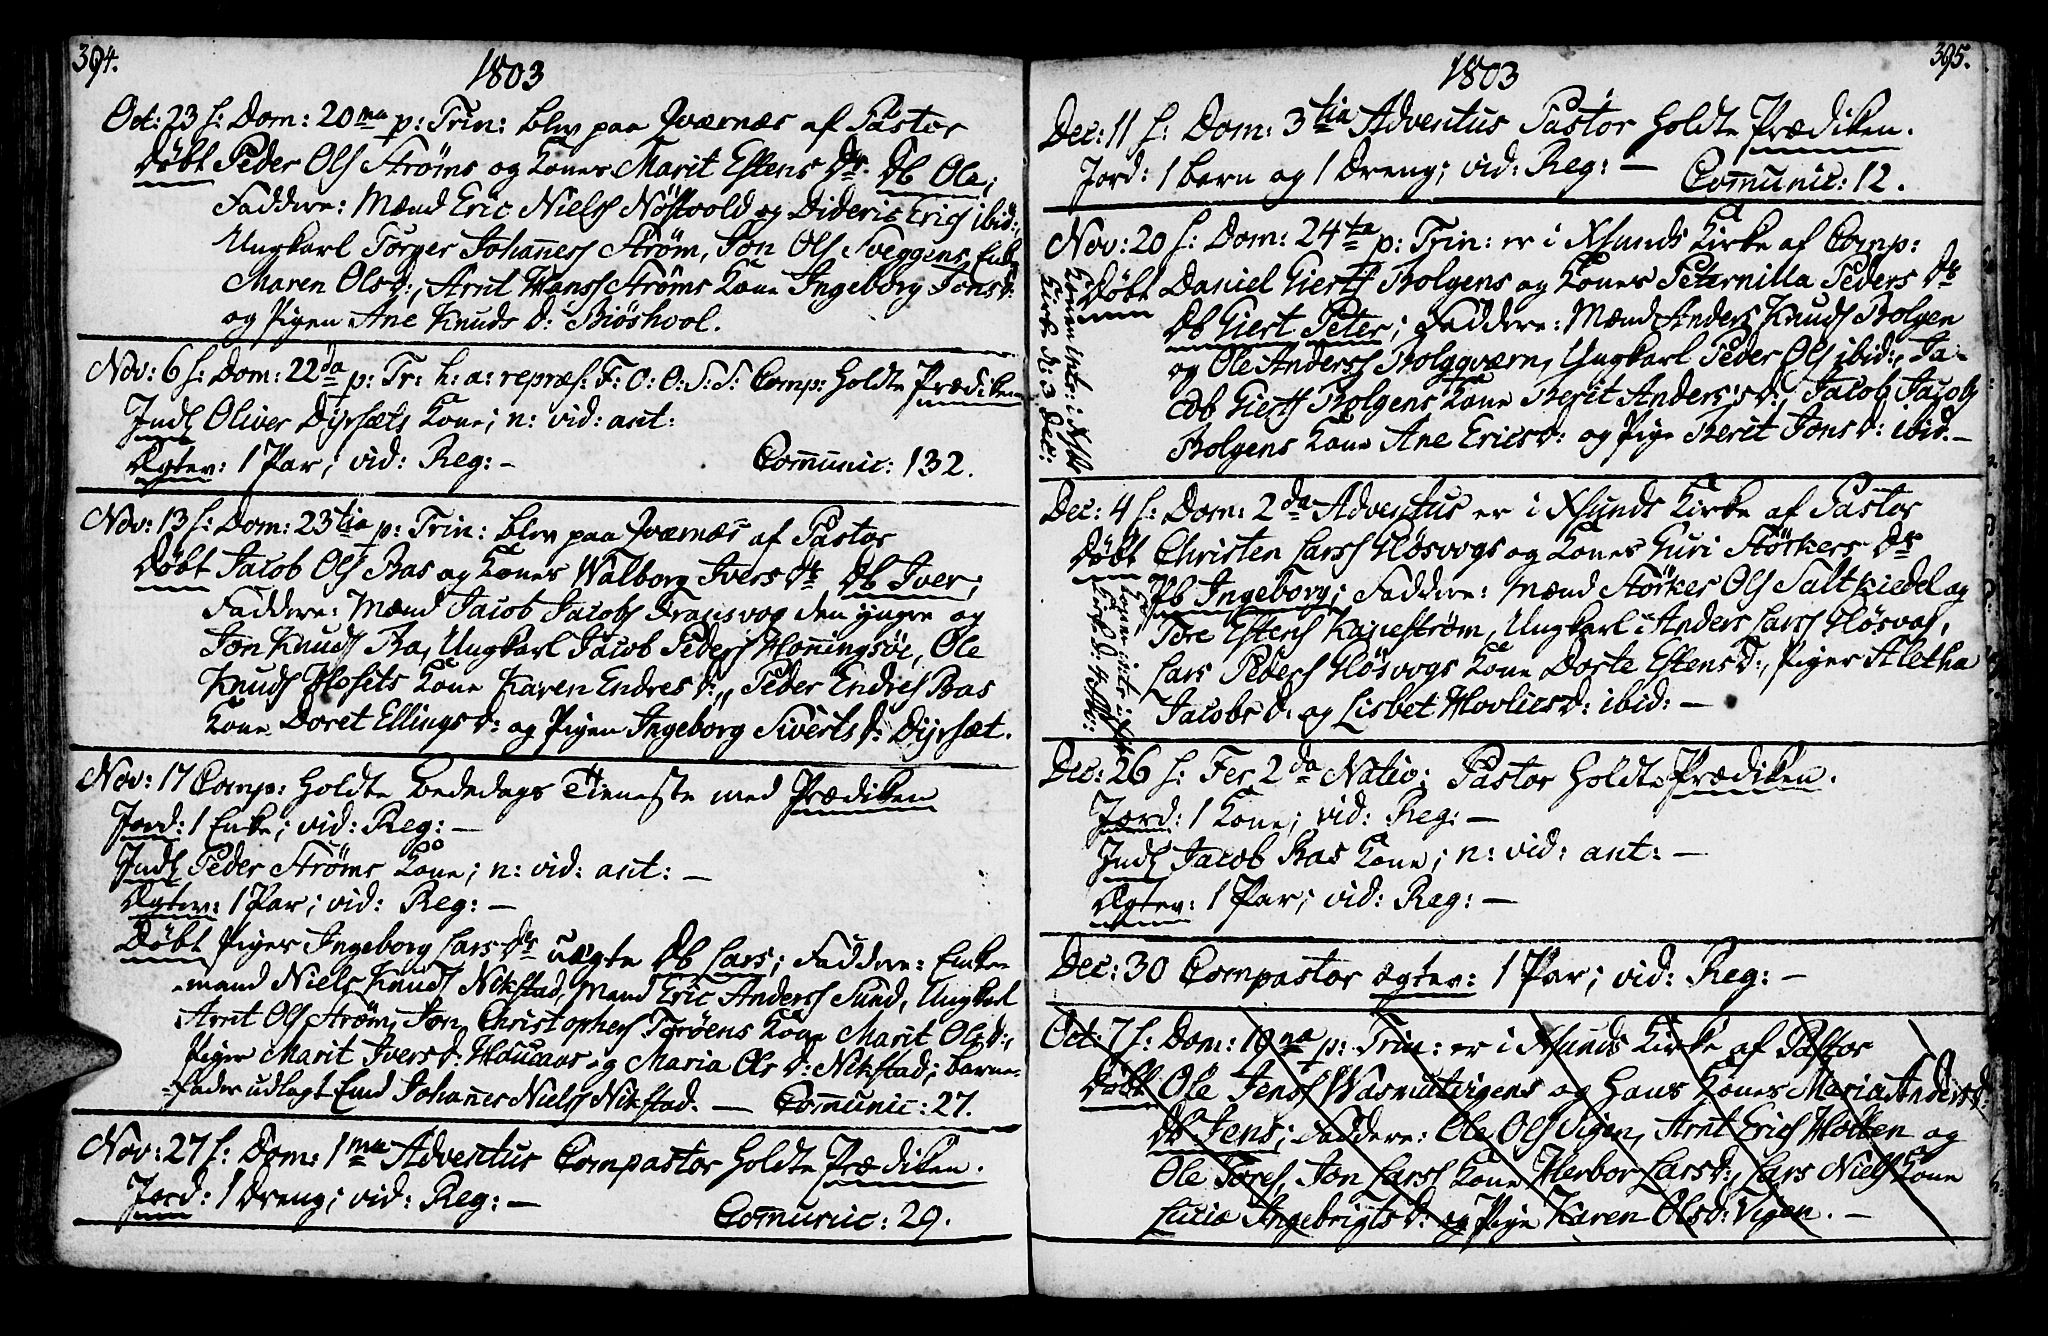 394.
1803
Oct: 23 s: Dom: 20ma p: Trin: blev paa Qværnæs af Pastor
Døbt Peder Ols Strøms og Kones Marit Estens Dr Db Ole;
Faddere: Mænd Eric Niels Nøstvold og Dideric Erics ibid:,
Ungkarl Torger Johannes Strøm, Jon Ols Sveggens Enke
Maren Olsd:, Arnt Hans Strøms Kone Ingeborg Jonsd:
og Pigen Ane Knuds d: Biøshvol.
Nov: 6 s: Dom: 22da p: Tr: h: a: repræs: F: O: O: S: S: Comp: holdte Prædiken
Indl Oliver Dyrsæts Kone; n: vid: ant:
Ægtev: 1 Par; vid: Reg: –
Communic: 132.
Nov: 13 s: Dom: 23tia p: Trin: blev paa Qværnæs af Pastor
Døbt Jacob Ols Bas og Kones Walborg Ivers Dr Db Iver;
Faddere: Mænd Jacob Jacobs Fransvog den yngre og
Jon Knuds Ba, Ungkarl Jacob Peders Honningsøe, Ole
Knuds Hosets Kone Karen Endres d:, Peder Endres Bas
Kone Doret Ellings d: og Pigen Ingeborg Siverts d: Dyrsæt.
Nov: 17 Comp: holdte Bededags Tieneste med Prædiken
Jord: 1 Enke; vid: Reg: –
Indl Peder Strøms Kone; n: vid: ant: –
Ægtev: 1 Par; vid: Reg: –
Døbt Piges Ingeborg Lars Dr uægte Db Lars; Faddere: Enke-
mand Niels Knuds Nikstad, Mand Eric Anders Sund, Ungkarl
Arnt Ols Strøm, Jon Christophers Torøens Kone Marit Ols d:,
Piger Marit Ivers d: Haucaas og Maria Ols d: Nikstad; barne-
fader udlagt Emd Johannes Niels Nikstad. – Communic: 27.
Nov: 27 s: Dom: 1ma Adventus Compastor holdte Prædiken.
Jord: 1 Dreng; vid: Reg: –
Communic: 29.
395.
1803
Dec: 11 s: Dom: 3tia Adventus Pastor holdte Prædiken.
Jord: 1 barn og 1 Dreng; vid: Reg: – Communic: 12.
Nov: 20 s: Dom: 24ta p: Trin: er i Xsunds Kirke af Comp:
Døbt Daniel Gierts Bolgens og Kones Peternilla Peders Dr
Db Giert Peter; Faddere: Mænd Anders Knuds Bolgen
og Ole Anders Bolggværn, Ungkarl Peder Ols ibid:, Ja-
cob Gierts Bolgens Kone Berit Anders d:, Jacob Jacobs
Bolgens Kone Ane Erics d: og Pige Berit Jons d: ibid. –
Konen Intr: i Xsds
Kirke d: 3 Dec:
Dec: 4 s: Dom: 2da Adventus er i Xsunds Kirke af Pastor
Døbt Christen Lars Gløsvogs og Kones Guri Størkers Dr
Pb Ingeborg; Faddere: Mænd Størker Ols Saltkiedel og
Tore Estens Kapestrøm, Ungkarl Anders Lars Gløsvog,
Lars Peders Gløsvogs Kone Dorte Estens d:, Piger Aletha
Jacobs d: og Lisbet Havliers d: ibid: –
Dec: 26 s: Fer 2da Nativ: Pastor holdte Prædiken.
Jord: 1 Kone; vid: Reg: –
Indl Jacob Bas Kone; n: vid: ant: –
Ægtev: 1 Par; vid: Reg: –
Dec: 30 Compastor ægtev: 1 Par; vid: Reg: –
Oct: 7 s: Dom: 19na p: Trin: er i Xsunds Kirke af Pastor
Døbt Ole Jens Wasmutvigens og Hans Kones Maria Anders d:
Db Jens; Faddere: Ole Ols Vigen, Arnt Erics Holten og
Ole Tores, Jon Lars Kone Herbor Lars d:, Lars Niels Kone
Lucia Ingebrigts d: og Pige Karen Ols d: Vigen. –